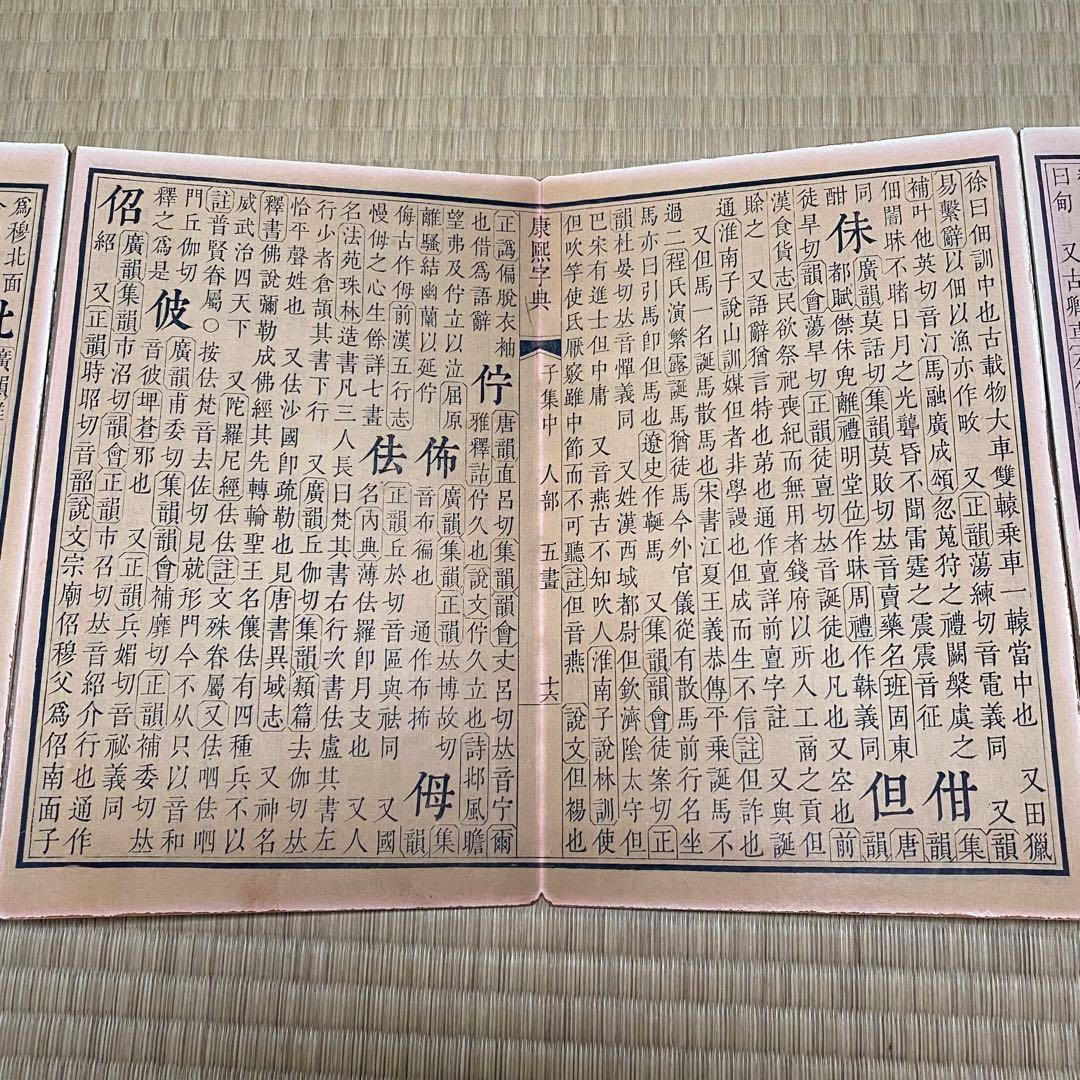 曰甸 又古
徐曰佃訓中也古載物大車雙轅乘車一轅當中也 又田獵
易繫辭以佃以漁亦作畋 又正韻蕩練切音電義同 又韻
補叶他英切音汀馬融廣成頌忽蒐狩之禮闕槃虞之
佃闇昧不堵日月之光聾昏不聞雷霆之震震音征 佄 集韻
同
酣
佅 廣韻莫話切集韻莫敗切𠀤音賣藥名班固東
都賦僸佅兜離禮明堂位作昧周禮作韎義同 但 唐韻
徒旱切韻會蕩旱切正韻徒亶切𠀤音誕徒也凡也又空也 前
漢食貨志民欲祭祀喪紀而無用者錢府以所入工商之貢但
賒之 又語辭猶言特也苐也通作亶詳前亶字註 又與誕
通淮南子說山訓媒但者非學謾也但成而生不信註但詐也
又但馬一名誕馬散馬也宋書江夏王義恭傳平乘誕馬不
過二程氏演繁露誕馬猶徒馬今外官儀從有散馬前行名坐
馬亦曰引馬卽但馬也遼史作䩥馬 又集韻韻會徒案切正
韻杜晏切𠀤音憚義同 又姓漢西域都尉但欽濟陰太守但
巴宋有進士但中庸 又音燕古不知吹人淮南子說林訓使
但吹竽使氏厭竅雖中節而不可聽註但音燕 說文但裼也
康熙字典 子集中 人部 五畫 十六
正譌偏脫衣袖
也借爲語辭
佇 唐韻直呂切集韻韻會丈呂切𠀤音宁爾
雅釋詁佇久也說文佇久立也詩邶風瞻
望弗及佇立以泣屈原
離騷結幽蘭以延佇
佈 廣韻集韻正韻𠀤博故切
音布徧也 通作布抪
㑄 集韻
侮古作㑄前漢五行志
慢㑄之心生餘詳七畫
佉 正韻丘於切音區與祛同 又國
名內典薄佉羅卽月支也 又人
名法苑珠林造書凡三人長曰梵其書右行次書佉盧其書左
行少者倉頡其書下行 又廣韻丘伽切集韻類篇去伽切𠀤
恰平聲姓也 又佉沙國卽疏勒也見唐書異域志 又神名
釋書佛說彌勒成佛經其先轉輪聖王名儴佉有四種兵不以
威武治四天下 又陀羅尼經佉佉註文殊眷屬又佉呬佉呬
註普賢眷屬○按佉梵音去佐切見就形門今不从只以音和
門丘伽切
釋之爲是
佊 廣韻甫委切集韻韻會補靡切正韻補委切𠀤
音彼埤蒼邪也 又正韻兵媚切音祕義同
佋 廣韻集韻市沼切韻會正韻市召切𠀤音紹介行也通作
紹 又正韻時昭切音韶說文宗廟佋穆父爲佋南面子
爲穆北面